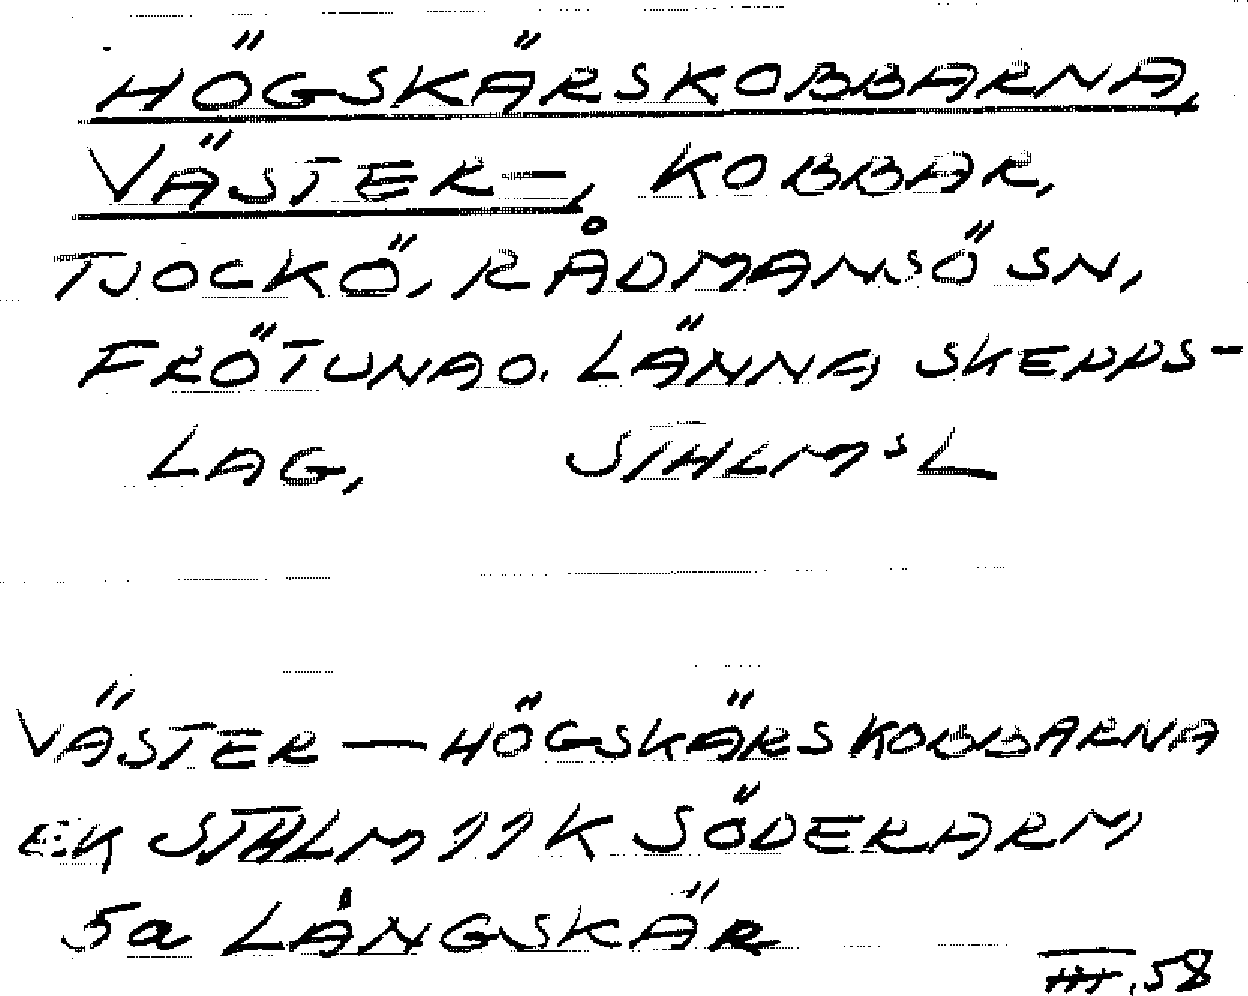 HÖGSKÄRSKOBBARNA,
VÄSTER-, KOBBAR,
TJOCKÖ, RÅDMANSÖ SN,
FRÖTUNA O. LÄNNA SKEPPS-
LAG, STHLMS L
VÄSTER — HÖGSKÄRSKOBBARNA
EK STHLM 11 K SÖDERARM
5a LÅNGSKÄR
III.58